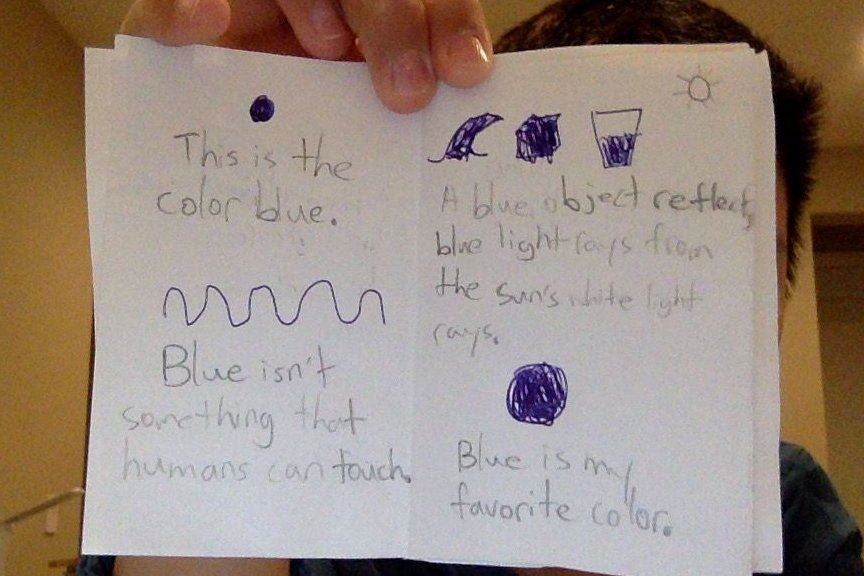 This is the
color blue.
Blue isn't
something that
humans can touch.
A blue object reflects
blue light rays from
the sun's white light
rays.
Blue is my
favorite color.